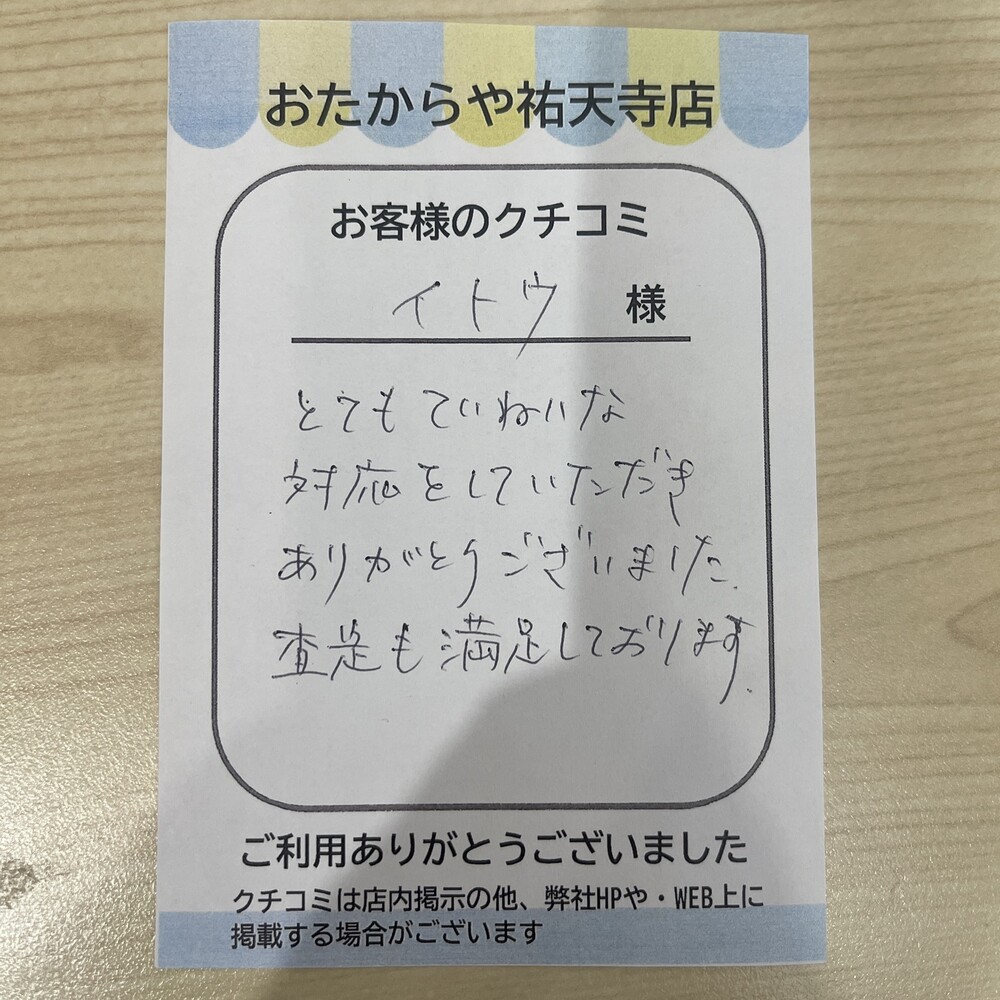 おたからや祐天寺店
お客様のクチコミ
イトウ 様
とてもていねいな
対応をしていただき
ありがとうございました.
査定も満足しております.
ご利用ありがとうございました
クチコミは店内掲示の他、弊社HPや・WEB上に
掲載する場合がございます